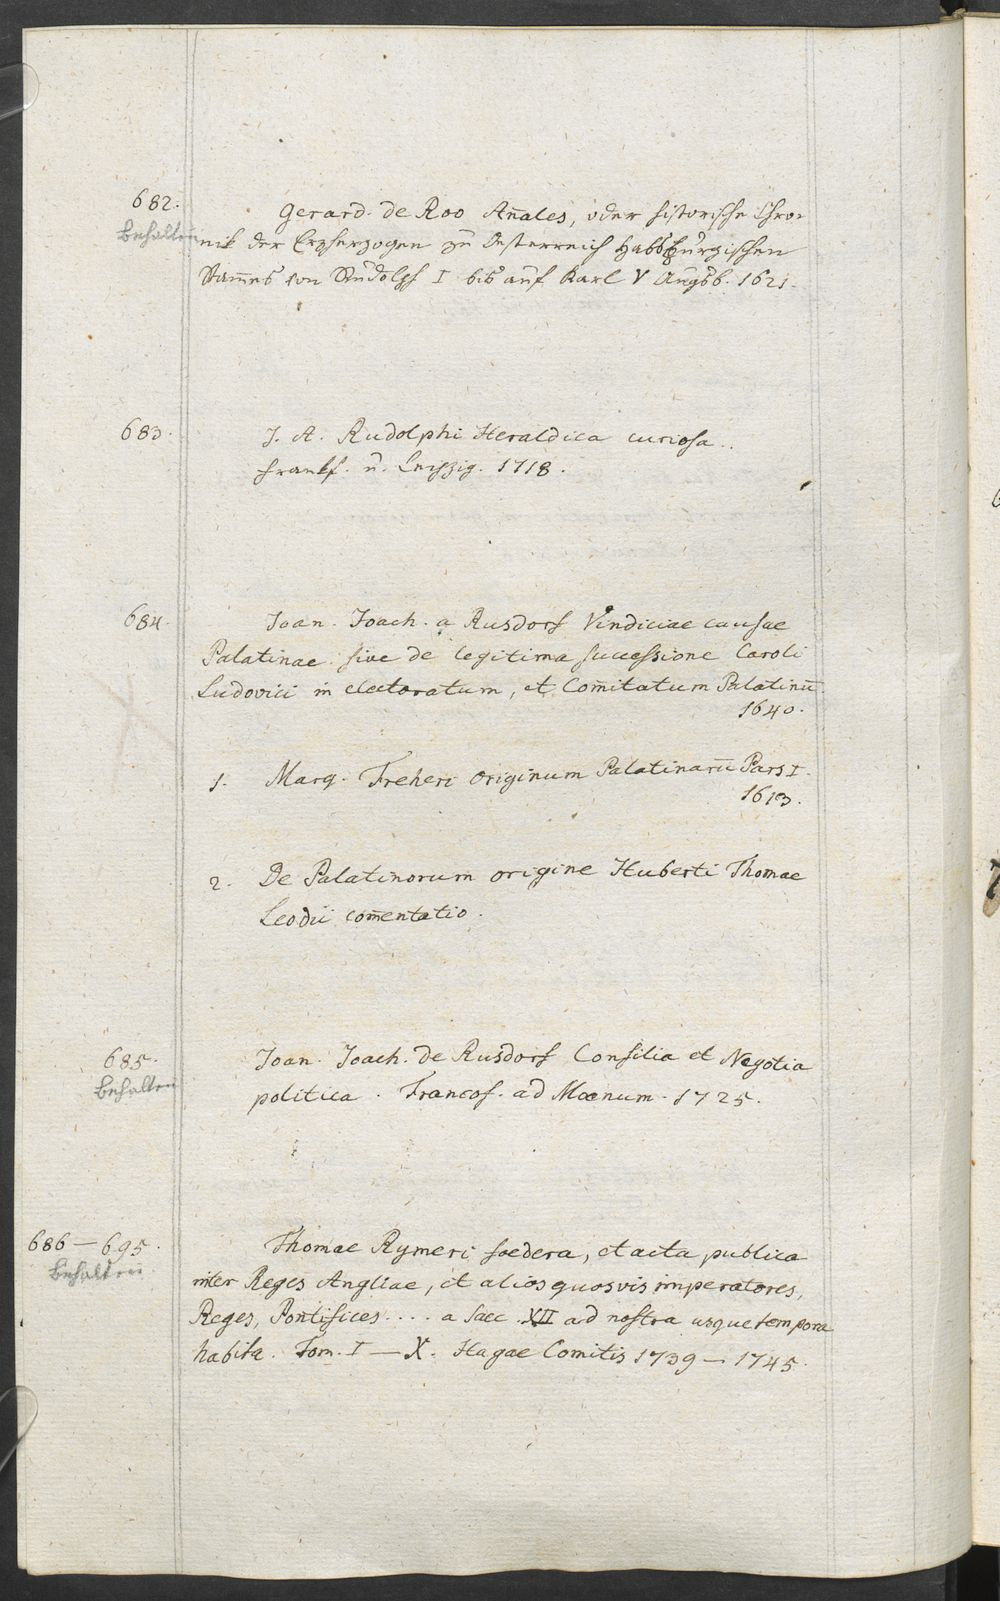 682.
Behalten
Gerard. de Roo Am̄ales, oder historische Chro-
nik der Erzherzogen zu Oesterreich Habsburgischen
Stam̄es von Rudolph I bis auf Karl V Augsb. 1621.
683.
J. A. Rudolphi Heraldica curiosa..
Frankf. u. Leipzig. 1718.
684.
Joan. Joach. a Rusdorf Vindiciae causae
Palatinae sive de legitima successione Caroli
Ludovici in electoratum, et Com̄itatum Palatinū
1640.
1. Marq. Freheri originum Palatinarū Pars I.
1613.
2. De Palatinorum origine Huberti Thomae
Leodii com̄entatio.
685.
Behalten
Joan. Joach. de Rusdorf Consilia et Negotia
politica. Francof. ad Moenum. 1725.
686—695.
Behalten
Thomae Rymeri foedera, et acta publica
inter Reges Angliae, et alios quosvis imperatores,
Reges, Pontifices.... a saec. XII ad nostra usque tempora
habita. Tom. I—X. Hagae Comitis 1739—1745.